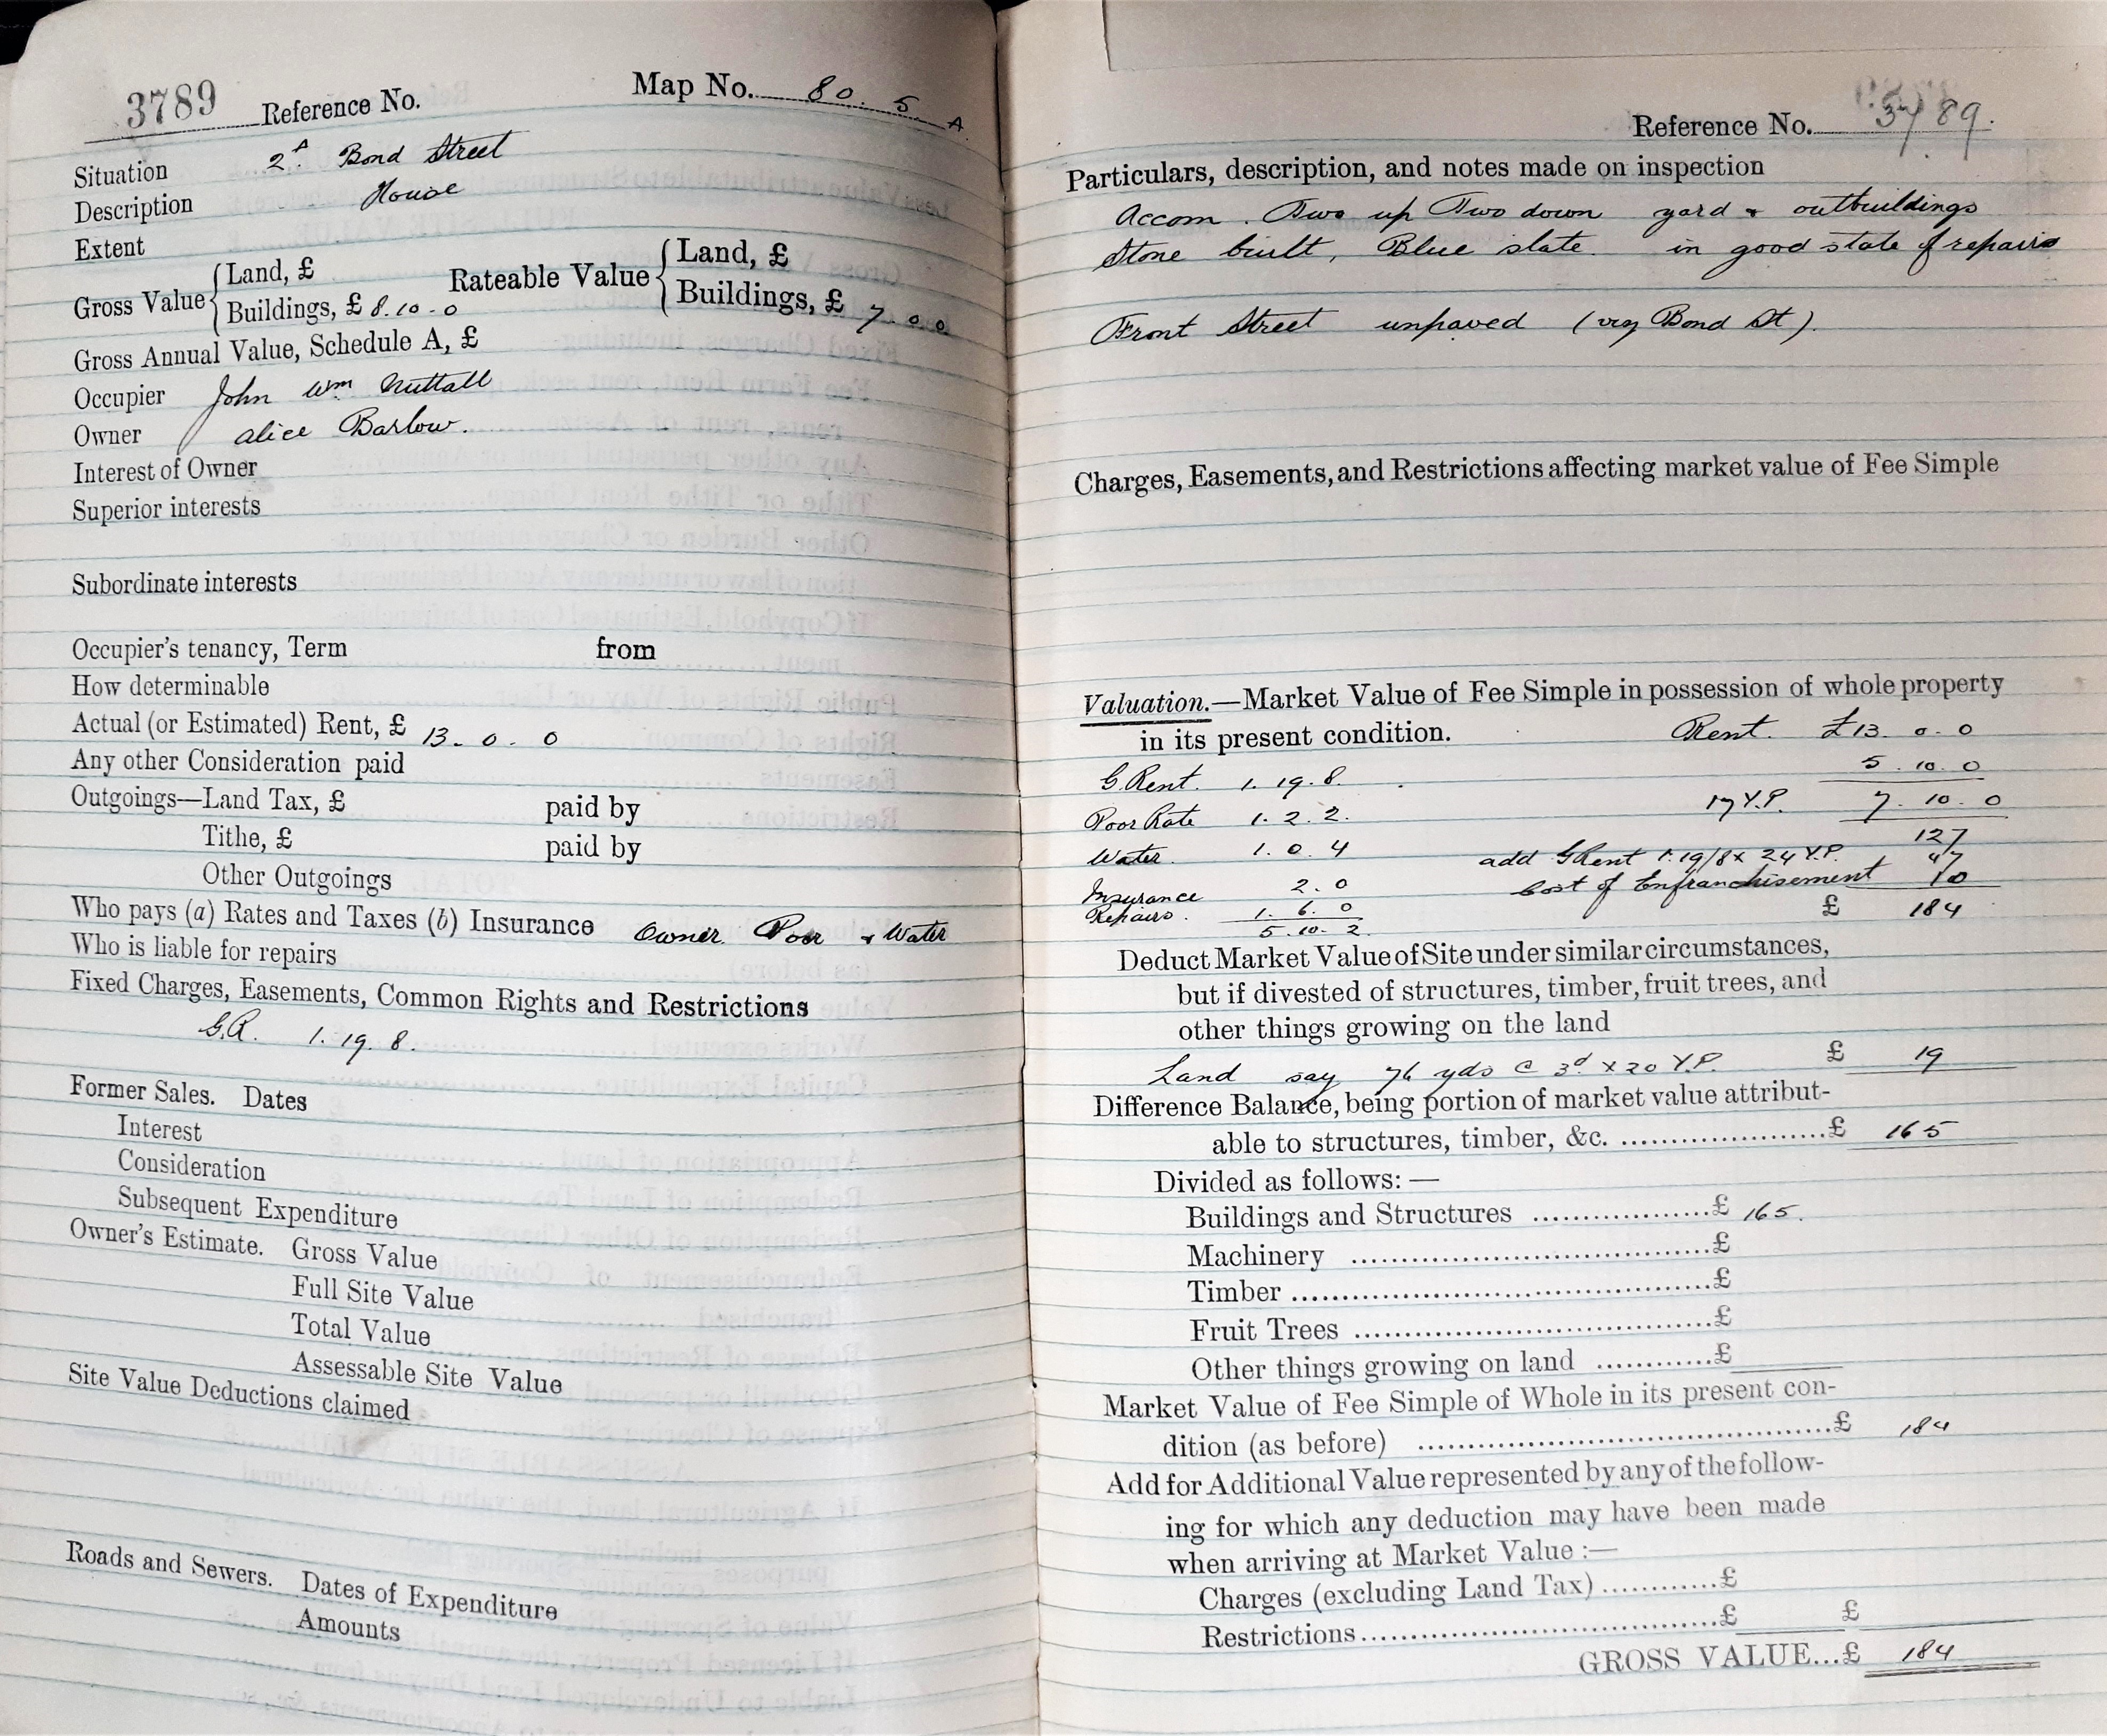 3789 Reference No. Map No. 80.5 A
Situation 2A. Bond Street
Description House
Extent
Gross Value { Land, £ Rateable Value { Land, £
Buildings, £ 8.10.0 Buildings, £ 7 0 0
Gross Annual Value, Schedule A, £
Occupier John Wm Nuttall
Owner Alice Barlow.
Interest of Owner
Superior interests
Subordinate interests
Occupier's tenancy, Term from
How determinable
Actual (or Estimated) Rent, £ 13. 0. 0
Any other Consideration paid
Outgoings—Land Tax, £ paid by
Tithe, £ paid by
Other Outgoings
Who pays (a) Rates and Taxes (b) Insurance Owner. Poor & Water
Who is liable for repairs
Fixed Charges, Easements, Common Rights and Restrictions
G.R. 1. 19. 8.
Former Sales. Dates
Interest
Consideration
Subsequent Expenditure
Owner's Estimate. Gross Value
Full Site Value
Total Value
Assessable Site Value
Site Value Deductions claimed
Roads and Sewers. Dates of Expenditure
Amounts
Reference No. 3789.
Particulars, description, and notes made on inspection
Accom. Two up Two down yard & outbuildings
Stone built, Blue slate. in good state of repairs
Front Street unpaved (Bond St).
Charges, Easements, and Restrictions affecting market value of Fee Simple
Valuation.—Market Value of Fee Simple in possession of whole property
in its present condition. Rent. £13. 0. 0
5. 10. 0
G. Rent. 1. 19. 8.
17 Y.P. 7. 10. 0
Poor Rate 1. 2. 2.
127
Water. 1. 0. 4 add G Rent 1.19/8 x 24 Y.P. 47
Insurance 2. 0 Cost of Enfranchisement 10
Repairs. 1. 6. 0 £ 184
5. 10. 2.
Deduct Market Value of Site under similar circumstances,
but if divested of structures, timber, fruit trees, and
other things growing on the land
Land say 76 yds @ 3d x 20 Y.P. £ 19
Difference Balance, being portion of market value attribut-
able to structures, timber, &c. £ 165
Divided as follows:—
Buildings and Structures £ 165.
Machinery £
Timber £
Fruit Trees £
Other things growing on land £
Market Value of Fee Simple of Whole in its present con-
dition (as before) £ 184
Add for Additional Value represented by any of the follow-
ing for which any deduction may have been made
when arriving at Market Value:—
Charges (excluding Land Tax) £
Restrictions £ £
GROSS VALUE...£ 184